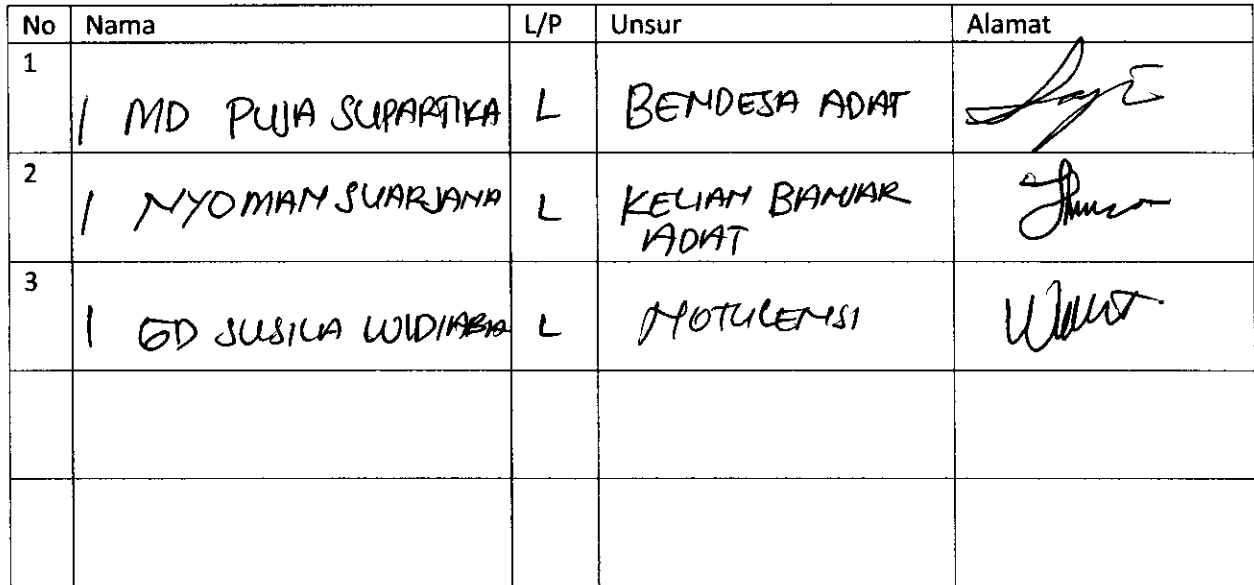 No Nama L/P Unsur Alamat
1
I MD PUJA SUPARTIKA L BENDESA ADAT
2
I NYOMAN SUARJANA L KELIAN BANJAR
ADAT
3
I GD SUSILA L NOTULENSI